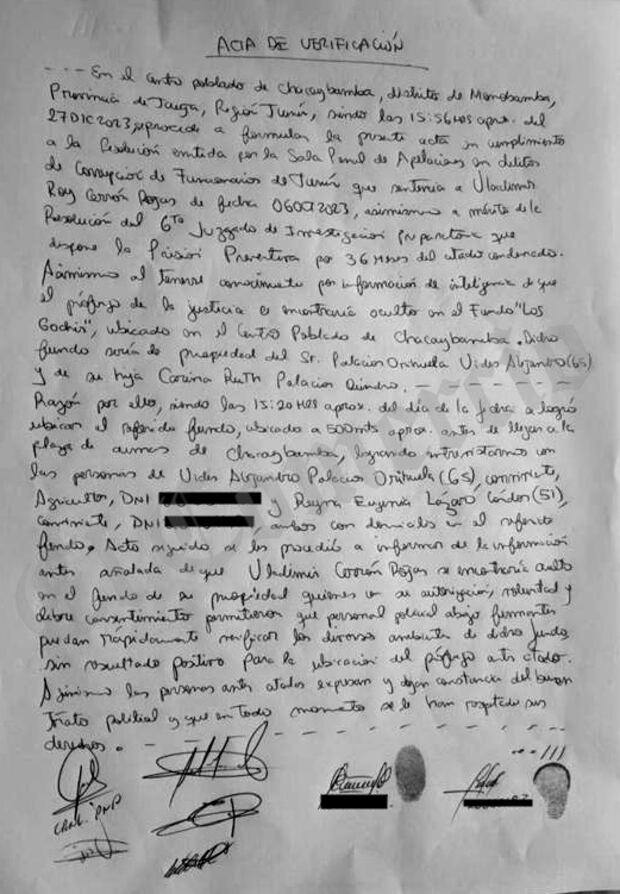 ACTA DE VERIFICACIÓN
- - - En el Centro poblado de Chacaybamba, distrito de Monobamba,
Provincia de Jauja, Región Junín, siendo las 15:56 HRS aprox. del
27DIC2023, se procede a formular la presente acta en cumplimiento
a la Resolución emitida por la Sala Penal de Apelaciones en delitos
de Corrupción de Funcionarios de Junín que sentencia a Vladimir
Roy Cerrón Rojas de fecha 06OCT2023, asimismo a mérito de la
Resolución del 6to Juzgado de Investigación preparatoria que
dispone la Prisión Preventiva por 36 Meses del citado condenado.
Asimismo al tenerse conocimiento por información de inteligencia de que
el prófugo de la justicia se encontraría oculto en el Fundo "Los
", ubicado en el Centro Poblado de Chacaybamba. Dicho
fundo sería de propiedad del Sr. Palacios Orihuela Vides Alejandro (65)
y de su hija Carina Ruth Palacios . - - - - - - -
Razón por ello, siendo las 15:20 HRS aprox. del día de la fecha se logró
ubicar el referido fundo, ubicado a 500 mts aprox. antes de llegar a la
plaza de armas de Chacaybamba, logrando entrevistarnos con
las personas de Vides Alejandro Palacios Orihuela (65), conviviente,
Agricultor, DNI y Reyna Eugenia Lázaro (51),
conviviente, DNI , ambos con domicilio en el referido
fundo. Acto seguido se les procedió a informar de la información
antes señalada de que Vladimir Cerrón Rojas se encontraría oculto
en el fundo de su propiedad quienes con su autorización, voluntad y
libre consentimiento permitieron que personal policial abajo firmantes
puedan rápidamente verificar los diversos ambientes de dicho fundo,
sin resultado positivo para la ubicación del prófugo antes citado.
Asimismo las personas antes citadas expresan y dejan constancia del buen
trato policial y que en todo momento se le han respetado sus
derechos. - - - - - - - - - - - - - - -
CRNL. PNP